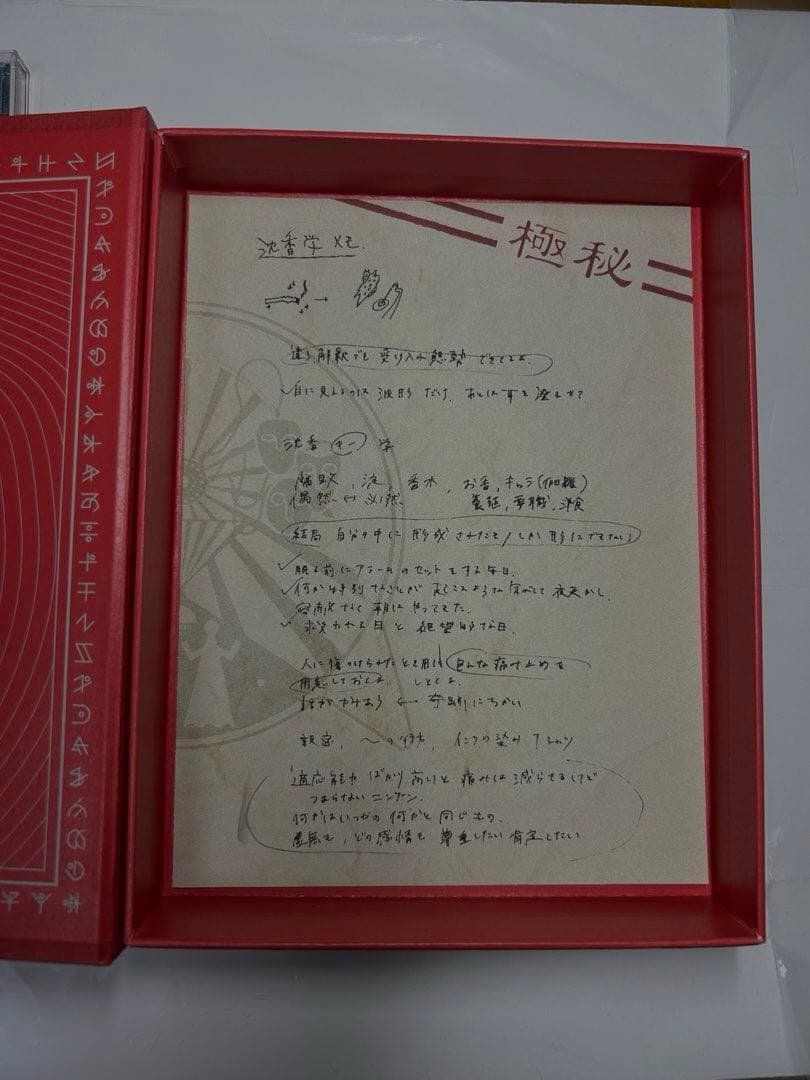 極秘
沈香学 メモ.
違う解釈でも 受け入れ態勢 できてるよ.
✓目に見えるのは 波形 だけ. あとは耳を澄ませて
沈香 学
沈, 香木, お香, キャラ(伽羅)
偶然や必然
結局 自分の中に 形成 されたモノしか 形にできない
✓眠る前にアラームのセットをする毎日.
✓何か特別なことが 起こるような 気がして 夜更かし.
容赦なく 朝は やってきた.
✓救われる日と 絶望的な日.
人に傷つけられたとき用に 色んな痛み止めを
用意しておくよ. しとくよ.
← 奇跡にちかい
インクの染み
適応能力 ばかり 高いと 痛みは 減らせるけど
つまらない ニンゲン.
何かはいつかの 何かと 同じもの.
虚無も, どの感情も 尊重したい 肯定したい